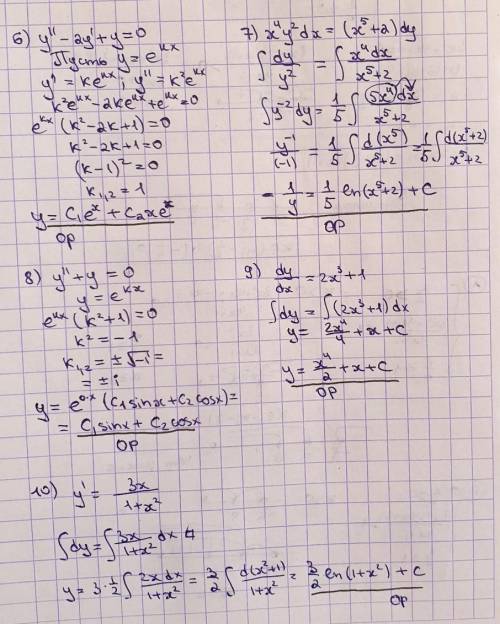 6) y'' - 2y' + y = 0
Пусть y = e^{kx}
y' = ke^{kx}; y'' = k²e^{kx}
k²e^{kx} - 2ke^{kx} + e^{kx} = 0
e^{kx}(k² - 2k + 1) = 0
k² - 2k + 1 = 0
(k - 1)² = 0
k_{1,2} = 1
y = C₁e^x + C₂xe^x
ОР
7) x⁴y²dx = (x⁵ + 2)dy
∫ dy/y² = ∫ x⁴dx/(x⁵+2)
∫ y⁻² dy = 1/5 ∫ 5x⁴dx/(x⁵+2)
y⁻¹/(-1) = 1/5 ∫ d(x⁵)/(x⁵+2) = 1/5 ∫ d(x⁵+2)/(x⁵+2)
- 1/y = 1/5 ln(x⁵+2) + C
ОР
8) y'' + y = 0
y = e^{kx}
e^{kx}(k² + 1) = 0
k² = -1
k_{1,2} = ±√-1 =
= ± i
y = e^{0·x}(C₁sinx + C₂cosx) =
= C₁sinx + C₂cosx
ОР
9) dy/dx = 2x³ + 1
∫dy = ∫(2x³ + 1)dx
y = 2x⁴/4 + x + C
y = x⁴/2 + x + C
ОР
10) y' = 3x/(1+x²)
∫dy = ∫ 3x/(1+x²) dx
y = 3·1/2 ∫ 2xdx/(1+x²) = 3/2 ∫ d(x²+1)/(1+x²) = 3/2 ln(1+x²) + C
ОР